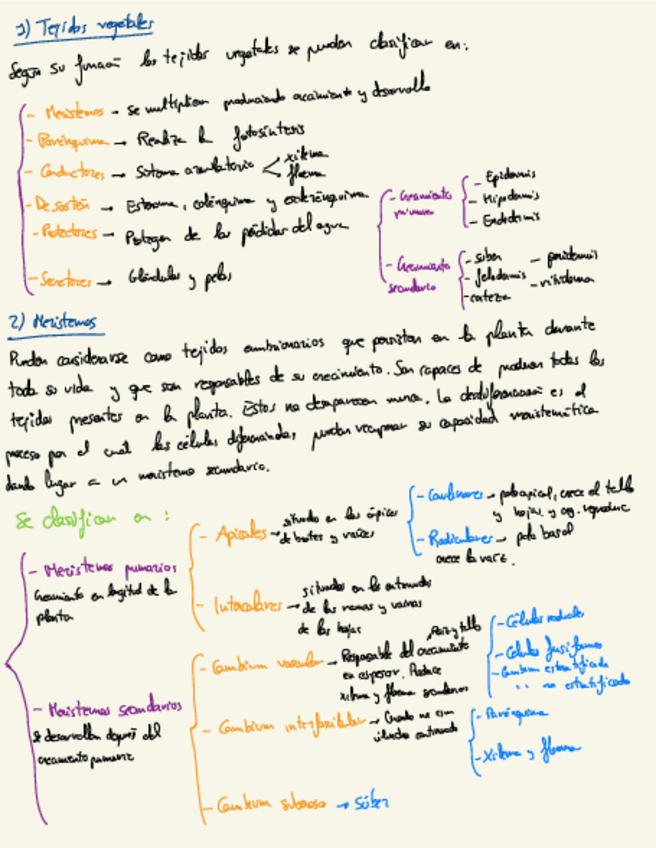 1) Tejidos vegetales
Según su función los tejidos vegetales se pueden clasificar en:
- Meristemos → se multiplican produciendo crecimiento y desarrollo
- Parénquima → Realiza la fotosíntesis
- Conductores → Sistema < xilema
floema
- De sostén → colénquima y esclerénquima
- Protectores → Protegen de las pérdidas del agua
- Crecimiento primario
- Epidermis
- Hipodermis
- Endodermis
- Crecimiento secundario
- súber - peridermis
- felodermis - ritidoma
- corteza
- Secretores → Glándulas y pelos
2) Meristemos
Pueden considerarse como tejidos embrionarios que persisten en la planta durante
toda su vida y que son responsables de su crecimiento. Son capaces de producir todos los
tejidos presentes en la planta. Estos no desaparecen nunca. La desdiferenciación es el
proceso por el cual las células diferenciadas, pueden recuperar su capacidad meristemática
dando lugar a un meristemo secundario.
Se clasifican en:
- Meristemos primarios
Crecimiento en longitud de la
planta
- Apicales → situados en los ápices
de brotes y raíces
- Caulinares → polo apical, crece el tallo
y hojas y org. reproduc
- Radiculares → polo basal
crece la raíz.
- Intercalares → situados en los entrenudos
de las ramas y vainas
de las hojas
- Meristemos secundarios
se desarrollan después del
crecimiento primario
- Cambium vascular → Responsable del crecimiento
en espesor. Produce
xilema y floema secundarios
Raíz y tallo
- Células radiales
- Células fusiformes
- Cambium estratificado
" " no estratificado
- Cambium interfascicular →
- Parénquima
- Xilema y floema
- Cambium suberoso → Súber